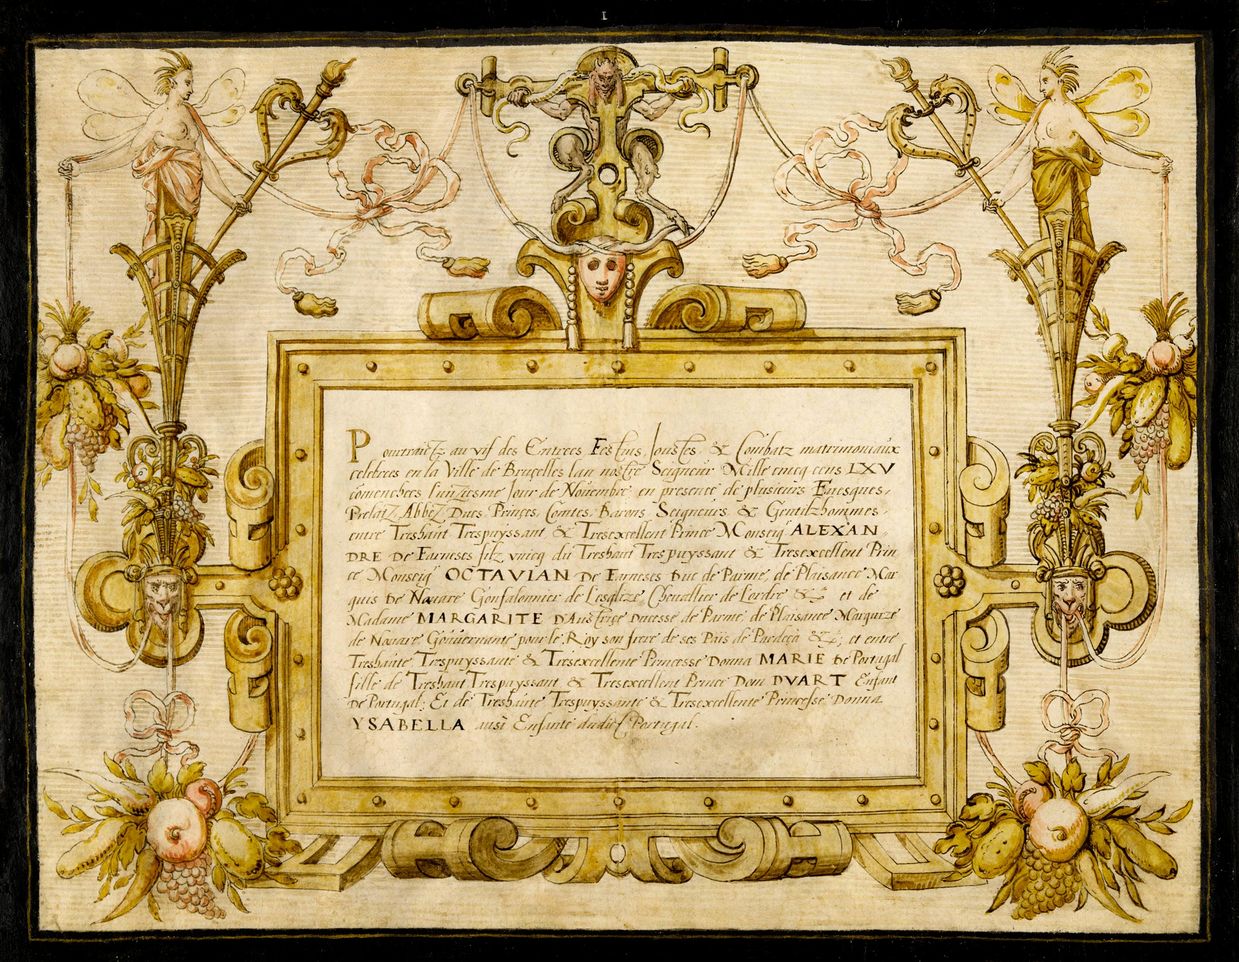 I
Pourtraictz au vif des Entrees Festins Joustes & Combatz matrimoniaux
celebres en la Ville de Bruxelles lan nostre Seigneur Mille cincq cens LXV
comenchees l'unziesme Jour de Novembre, en presence de plusieurs Evesques,
Prelatz Abbez Ducs Princes Comtes Barons Seigneurs & Gentilzhommes,
entre Treshault Trespuyssant & Tresexcellent Prince Monseigr ALEXAN
DRE De Farneses filz unicq du Treshault Trespuyssant & Tresexcellent Prin
ce Monseigr OCTAVIAN De Farneses Duc de Parme, de Plaisance Mar
quis De Novare Gonfalonnier de L'esglize, Chevallier de Lordre &c et de
Madame MARGARITE D'Austrice Ducesse de Parme, de Plaisance Marquize
de Novare Gouvernante pour le Roy son frere de ses Pais de Pardeça &c, et entre
Treshaulte Trespuyssante & Tresexcellente Princesse Donna MARIE De Portugal
fille de Treshault Trespuyssant & Tresexcellent Prince Don DVART Enfant
De Portugal; Et de Treshaulte Trespuyssante & Tresexcellente Princesse Donna
YSABELLA aussi Enfante dudict Portugal.